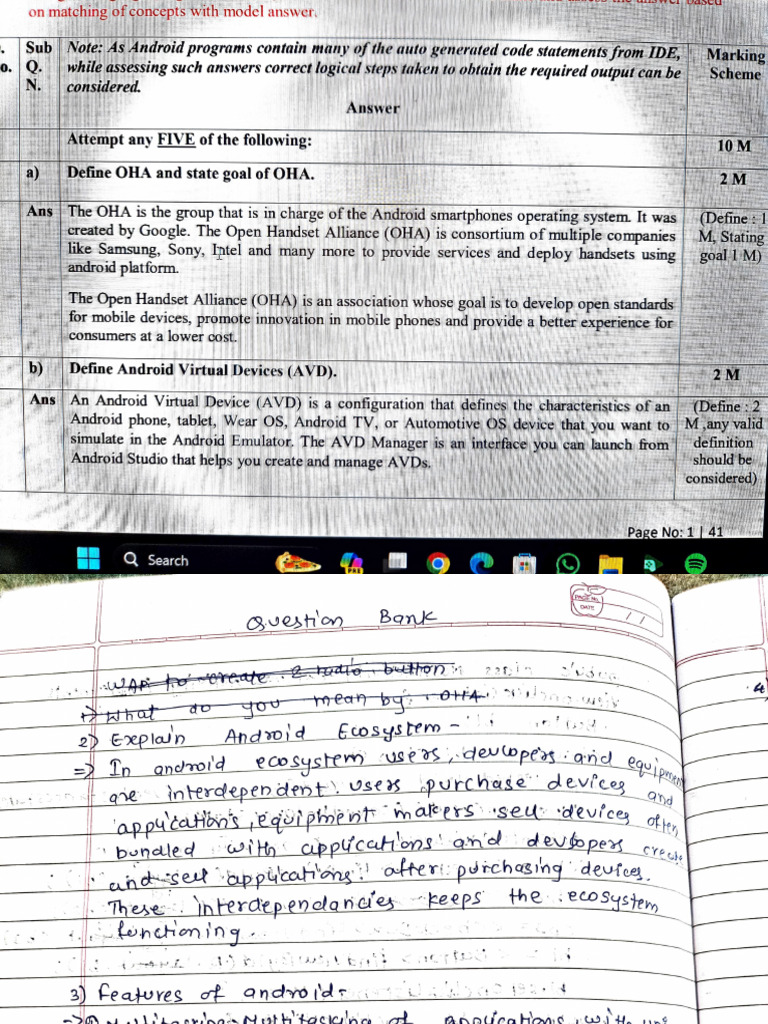 on matching of concepts with model answer.
Sub Q. N.
Note: As Android programs contain many of the auto generated code statements from IDE,
while assessing such answers correct logical steps taken to obtain the required output can be
considered.
Answer
Marking
Scheme
Attempt any FIVE of the following:
10 M
a) Define OHA and state goal of OHA.
2 M
Ans The OHA is the group that is in charge of the Android smartphones operating system. It was
created by Google. The Open Handset Alliance (OHA) is consortium of multiple companies
like Samsung, Sony, Intel and many more to provide services and deploy handsets using
android platform.
(Define : 1
M, Stating
goal 1 M)
The Open Handset Alliance (OHA) is an association whose goal is to develop open standards
for mobile devices, promote innovation in mobile phones and provide a better experience for
consumers at a lower cost.
b) Define Android Virtual Devices (AVD).
2 M
Ans An Android Virtual Device (AVD) is a configuration that defines the characteristics of an
Android phone, tablet, Wear OS, Android TV, or Automotive OS device that you want to
simulate in the Android Emulator. The AVD Manager is an interface you can launch from
Android Studio that helps you create and manage AVDs.
(Define : 2
M ,any valid
definition
should be
considered)
Page No: 1 | 41
Search
PAGE No.
DATE
/ /
Question Bank
WAP to create 2 radio button
1) What do you mean by OHA
2) Explain Android Ecosystem -
=> In android ecosystem users, devlopers and equipment
are interdependent. users purchase devices and
applications, equipment makers sell devices often
bundled with applications and devlopers create
and sell applications after purchasing devices.
These interdependancies keeps the ecosystem
functioning.
3) features of android-
Multitasking of applications, with